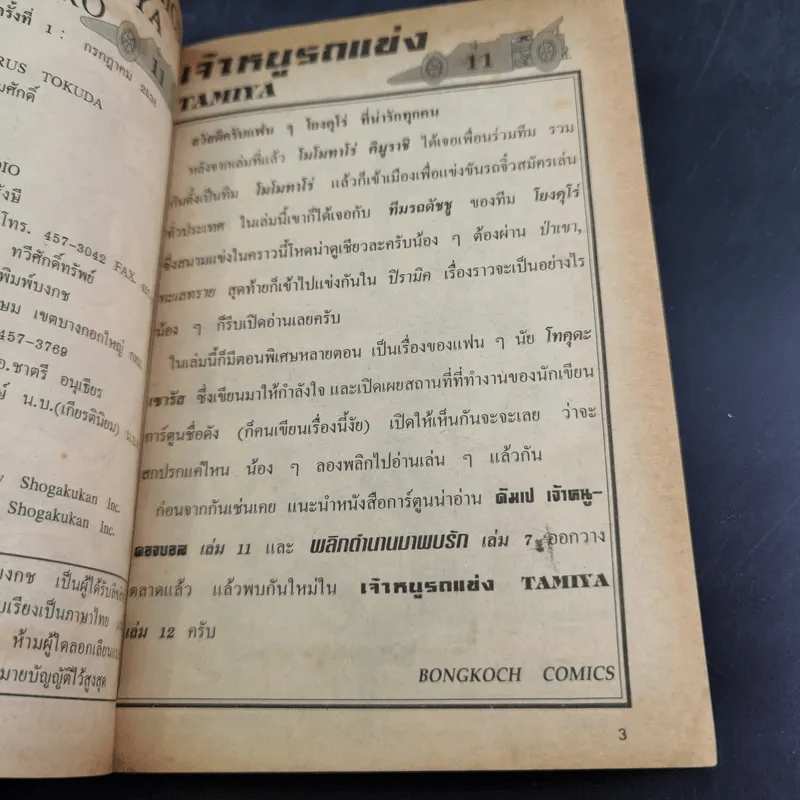 YA
RO
ครั้งที่ 1 : กรกฎาคม
RUS TOKUDA
DIO
โทร. 457-3042 FAX.
ทวีศักดิ์ทรัพย์
พิมพ์บงกช
เขตบางกอกใหญ่ กทม.
457-3769
อ.ชาตรี อนุเธียร
น.บ.(เกียรตินิยม)
Shogakukan Inc.
Shogakukan Inc.
บงกช เป็นผู้ได้รับลิขสิทธิ์
เรียบเรียงเป็นภาษาไทย
ห้ามผู้ใดลอกเลียน
กฎหมายบัญญัติไว้สูงสุด
เจ้าหนูรถแข่ง 11
TAMIYA
สวัสดีครับแฟน ๆ โยงคุโร่ ที่น่ารักทุกคน
หลังจากเล่มที่แล้ว โมโมทาโร่ คิมูราชิ ได้เจอเพื่อนร่วมทีม รวม
กันตั้งเป็นทีม โมโมทาโร่ แล้วก็เข้าเมืองเพื่อแข่งขันรถจิ๋วสมัครเล่น
ทั่วประเทศ ในเล่มนี้เขาก็ได้เจอกับ ทีมรถดัชชู ของทีม โยงคุโร่
ซึ่งสนามแข่งในคราวนี้โหดน่าดูเชียวละครับน้อง ๆ ต้องผ่าน ป่าเขา,
ทะเลทราย สุดท้ายก็เข้าไปแข่งกันใน ปิรามิด เรื่องราวจะเป็นอย่างไร
น้อง ๆ ก็รีบเปิดอ่านเลยครับ
ในเล่มนี้ก็มีตอนพิเศษหลายตอน เป็นเรื่องของแฟน ๆ นัย โทคุดะ
เซารัส ซึ่งเขียนมาให้กำลังใจ และเปิดเผยสถานที่ที่ทำงานของนักเขียน
การ์ตูนชื่อดัง (ก็คนเขียนเรื่องนี้งัย) เปิดให้เห็นกันจะจะเลย ว่าจะ
สกปรกแค่ไหน น้อง ๆ ลองพลิกไปอ่านเล่น ๆ แล้วกัน
ก่อนจากกันเช่นเคย แนะนำหนังสือการ์ตูนน่าอ่าน ดัมเป เจ้าหนู-
ดอจบอล เล่ม 11 และ พลิกตำนานมาพบรัก เล่ม 7 ออกวาง
ตลาดแล้ว แล้วพบกันใหม่ใน เจ้าหนูรถแข่ง TAMIYA
เล่ม 12 ครับ
BONGKOCH COMICS
3